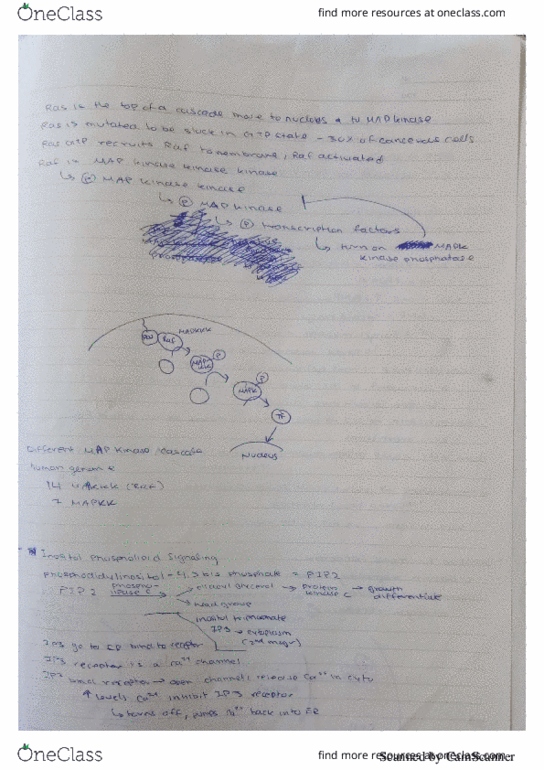 OneClass
find more resources at oneclass.com
Ras is the top of a cascade move to nucleus to MAP kinase
Ras is mutated to be stuck in GTP state - 30% of cancerous cells
Ras GTP recruits Raf to membrane, Raf activated
Raf is MAP kinase kinase kinase
↳ Ⓟ MAP kinase kinase
↳ Ⓟ MAP kinase
↳ Ⓟ transcription factors
↳ turn on MAPK
kinase phosphatase
Raf MAPKKK
P
MAPK
P
TF
Nucleus
Different MAP kinase cascade
human genome
14
7 MAPKK
Inositol Phospholipid Signaling
4,5 bisphosphate = PIP2
PIP2 phospholipase C → diacyl glycerol → protein kinase C → growth
differentiate
head group
inositol triphosphate
IP3 → cytoplasm
(2nd msgr)
IP3 go to ER bind to receptor
IP3 receptor is a Ca²⁺ channel
IP3 bind receptor → open channel, release Ca²⁺ in cyto
↑ levels Ca²⁺ inhibit IP3 receptor
↳ turns off, pumps Ca²⁺ back into ER
OneClass
find more resources at oneclass.com
Scanned by CamScanner